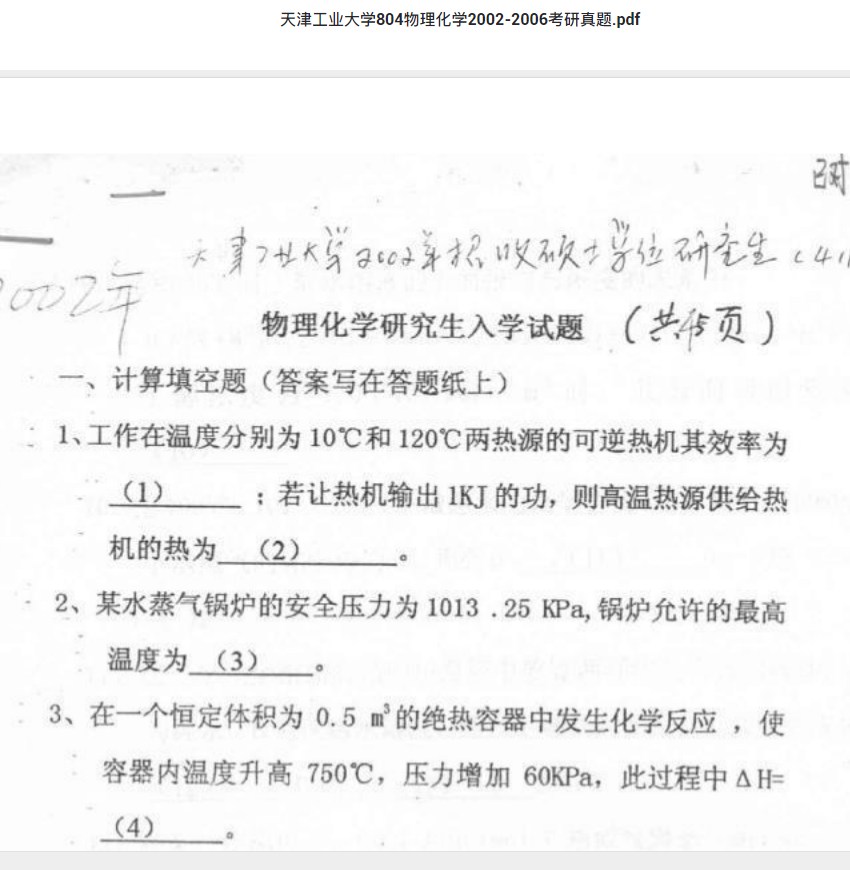 天津工业大学804物理化学2002-2006考研真题.pdf
天津工业大学2002年招收硕士学位研究生
2002年
物理化学研究生入学试题 (共 页)
一、计算填空题（答案写在答题纸上）
1、工作在温度分别为10℃和120℃两热源的可逆热机其效率为
(1) ；若让热机输出1KJ的功，则高温热源供给热
机的热为 (2) 。
2、某水蒸气锅炉的安全压力为1013.25 KPa,锅炉允许的最高
温度为 (3) 。
3、在一个恒定体积为 0.5 m³的绝热容器中发生化学反应 ，使
容器内温度升高 750℃，压力增加 60KPa，此过程中ΔH=
(4) 。